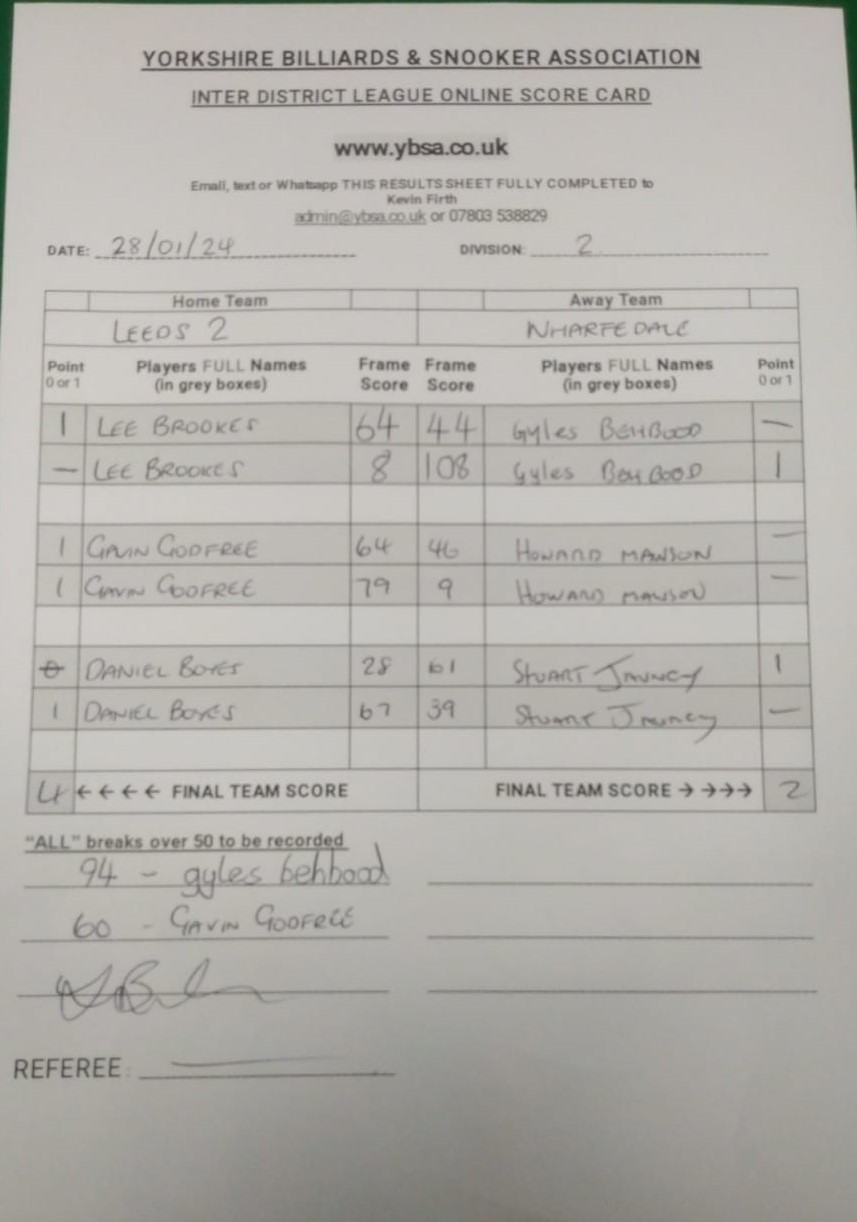 YORKSHIRE BILLIARDS & SNOOKER ASSOCIATION
INTER DISTRICT LEAGUE ONLINE SCORE CARD
www.ybsa.co.uk
Email, text or Whatsapp THIS RESULTS SHEET FULLY COMPLETED to
Kevin Firth
admin@ybsa.co.uk or 07803 538829
DATE: 28/01/24 DIVISION: 2
Home Team Away Team
LEEDS 2 WHARFEDALE
Point Players FULL Names Frame Frame Players FULL Names Point
0 or 1 (in grey boxes) Score Score (in grey boxes) 0 or 1
1 LEE BROOKES 64 44 Gyles BEHBOOD —
— LEE BROOKES 8 108 Gyles BEHBOOD 1
1 GAVIN GODFREE 64 46 HOWARD MAWSON —
1 GAVIN GODFREE 79 9 HOWARD MAWSON —
0 DANIEL BOYES 28 61 STUART JAUNCY 1
1 DANIEL BOYES 67 39 STUART JAUNCY —
4 ← ← ← ← FINAL TEAM SCORE FINAL TEAM SCORE → →→→ 2
"ALL" breaks over 50 to be recorded
94 - gyles behbood
60 - GAVIN GODFREE
REFEREE: —